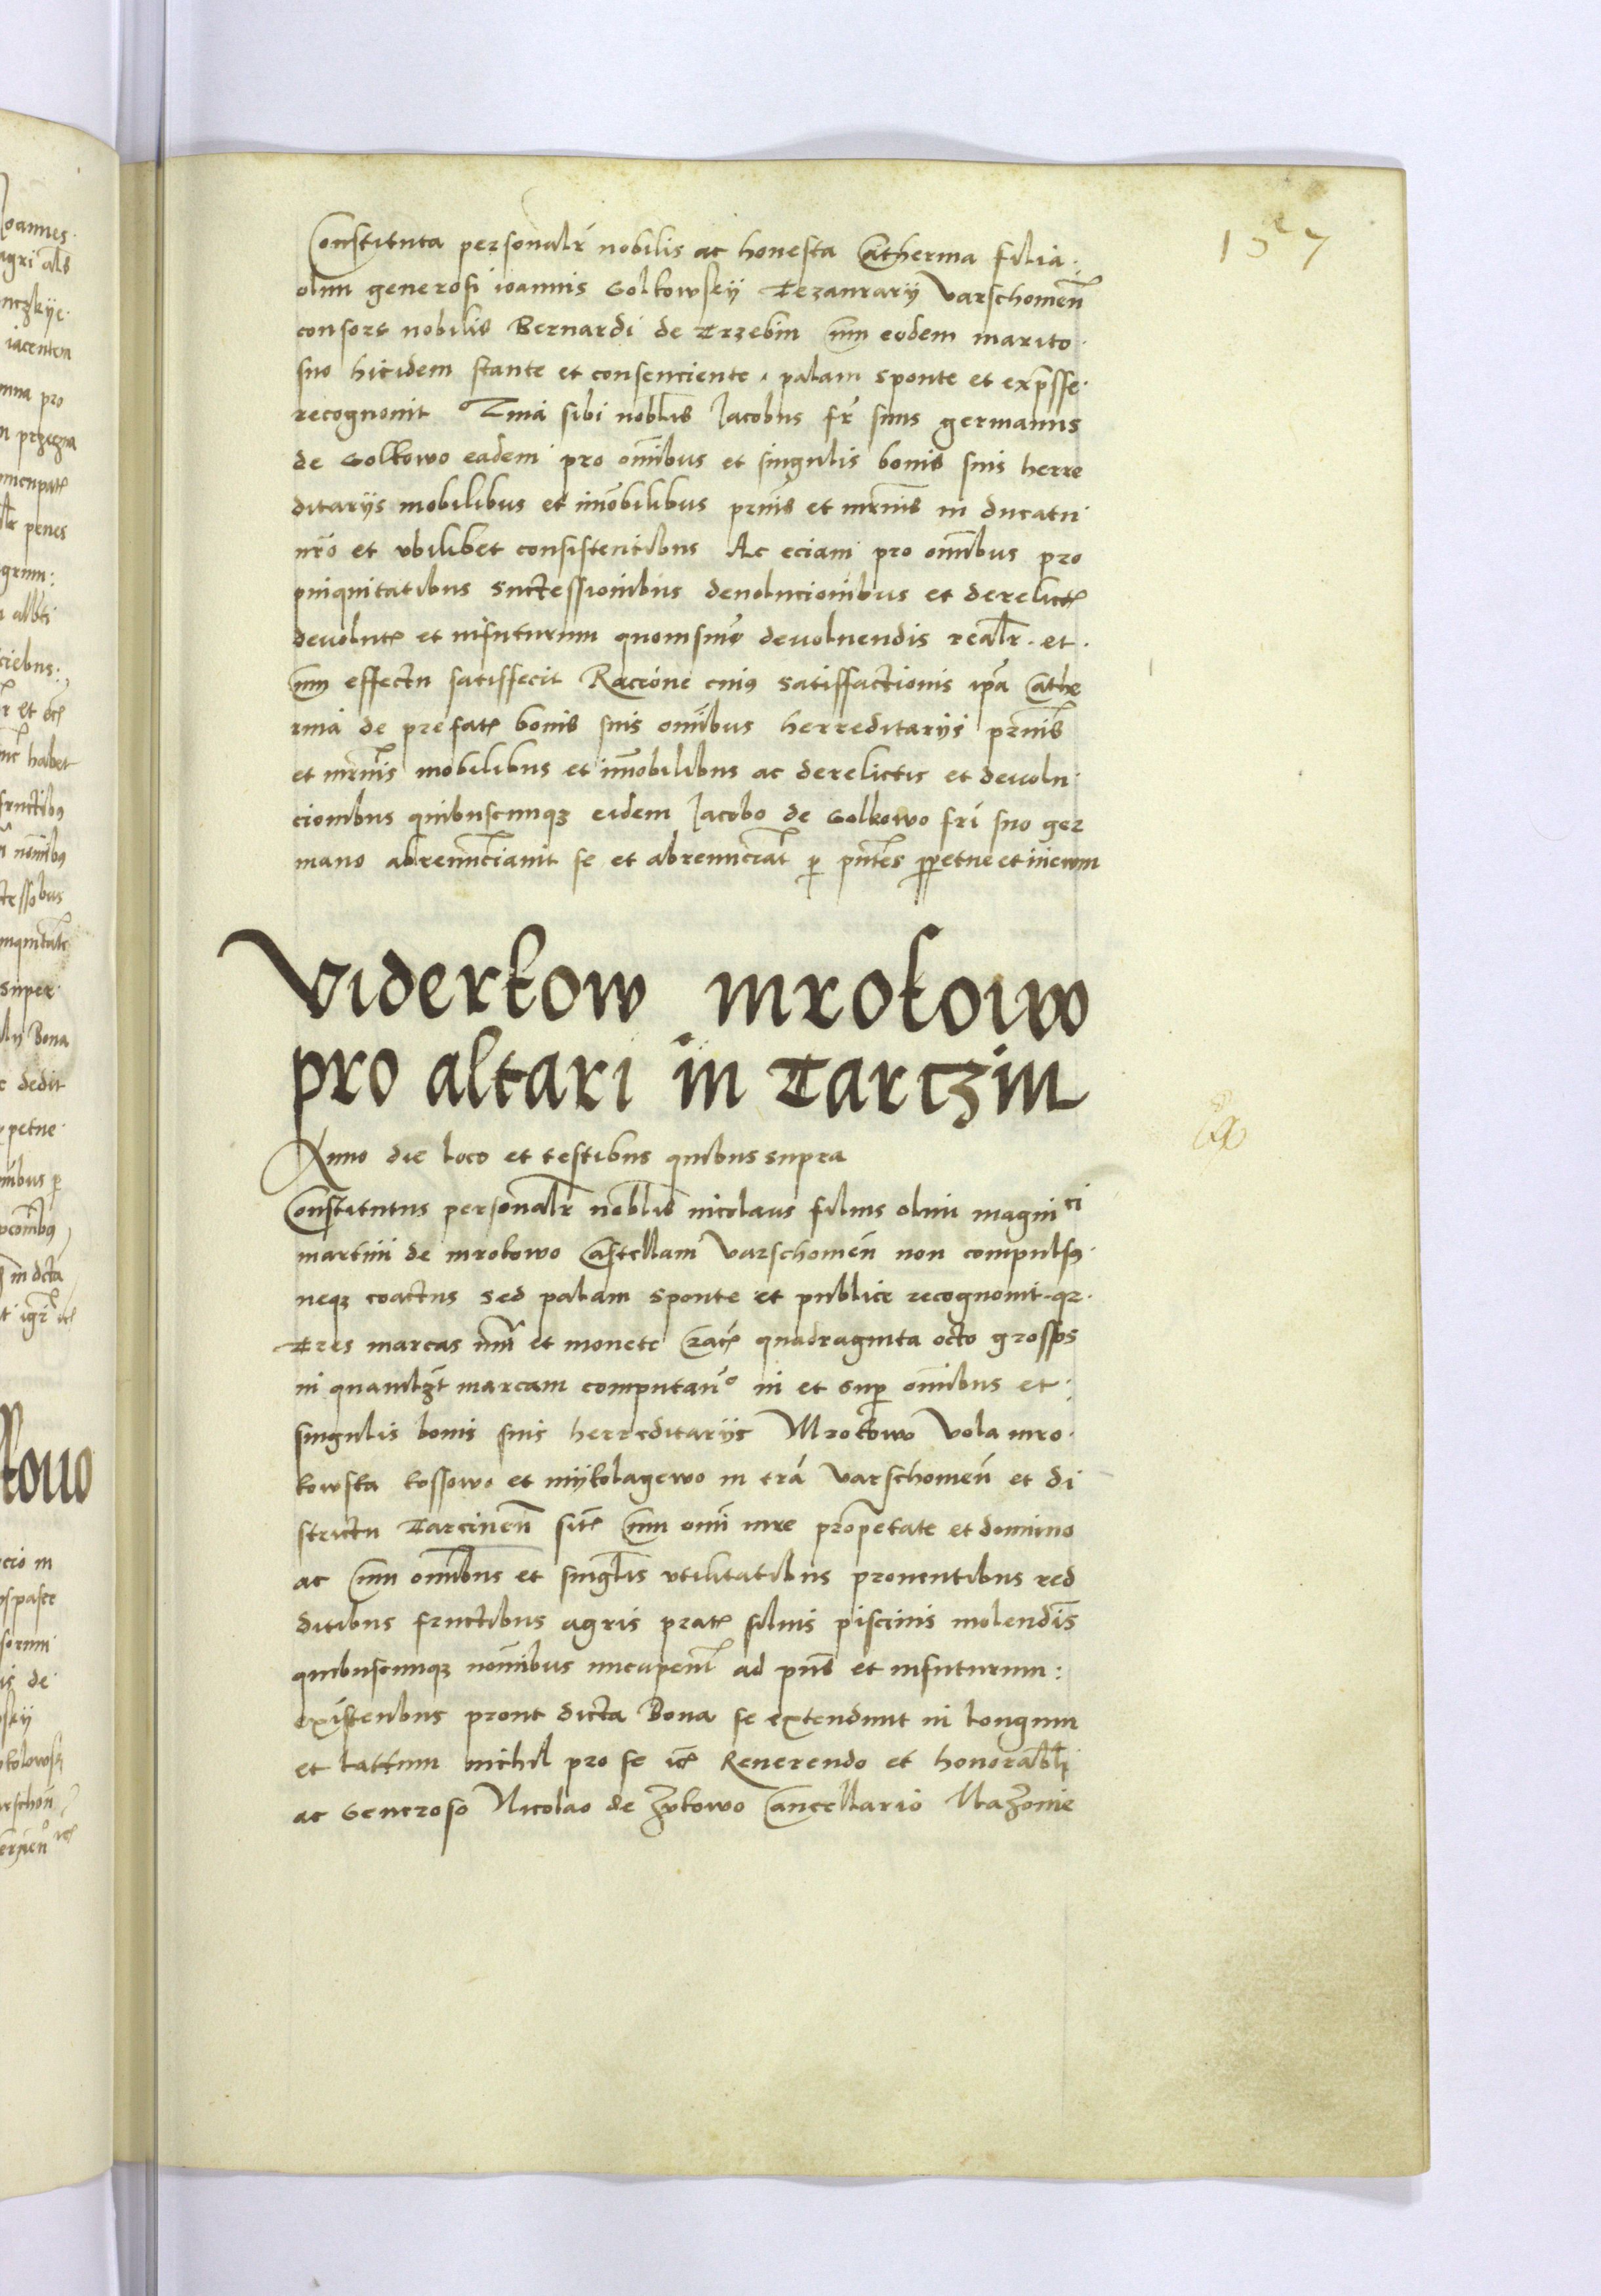 1527
Constituta personalr nobilis ac honesta Catherina filia
olim generosi ioannis Golkowsky Tezaurarij Varschouien
consors nobilis Bernardi de Trzebin cum eodem marito
suo hicidem stante et consenciente palam sponte et expsse
recognouit Quia sibi noblis Jacobus fr suus germanus
de Golkowo eadem pro omibus et singulis bonis suis herre
ditarijs mobilibus et imobilibus prnis et mrnis in ducatu
nro et vbilibet consistentibus Ac eciam pro omibus pro
pinquitatibus successionibus deuolucionibus et derelict
deuolut et infuturum quomsuis deuoluendis realr et
cum effectu satisfecit Racione cuius satisfactionis ipa Cathe
rina de prefat bonis suis omibus herreditarijs prnis
et mrnis mobilibus et immobilibus ac derelictis et deuolu
cionibus quibuscunqz eidem Jacobo de Golkowo fri suo ger
mano abrenunciauit se et abrenunciat p pntes ppetue et ineum
Viderkow mrokoiw
pro altari in Tarczin
Anno die loco et testibus quibus supra
Constitutus personalr noblis nicolaus filius olim magnici
martini de mrokowo Castellani Varschouien non compulsus
neqz coactus sed palam sponte et publice recognouit qr
Tres marcas num et monete quadraginta octo grossos
in quamlzt marcam computando in et sup omibus et
singulis bonis suis herreditarijs Mrokowo Vola mro
kowska kossowo et mykolagewo in tra Varschouien et di
strictu Tarcinen sit cum omi iure proprietate et dominio
ac cum omibus et singlis vtilitatibus prouentibus red
ditibus fructibus agris prat siluis piscinis molendis
quibuscunqz nomibus nucupent ad pns et infuturum:
existenbus prout dicta Bona se extendunt in longum
et lattum nichil pro se Reuerendo et honorabli
ac Generoso Nicolao de Zukowo Cancellario Mazouie